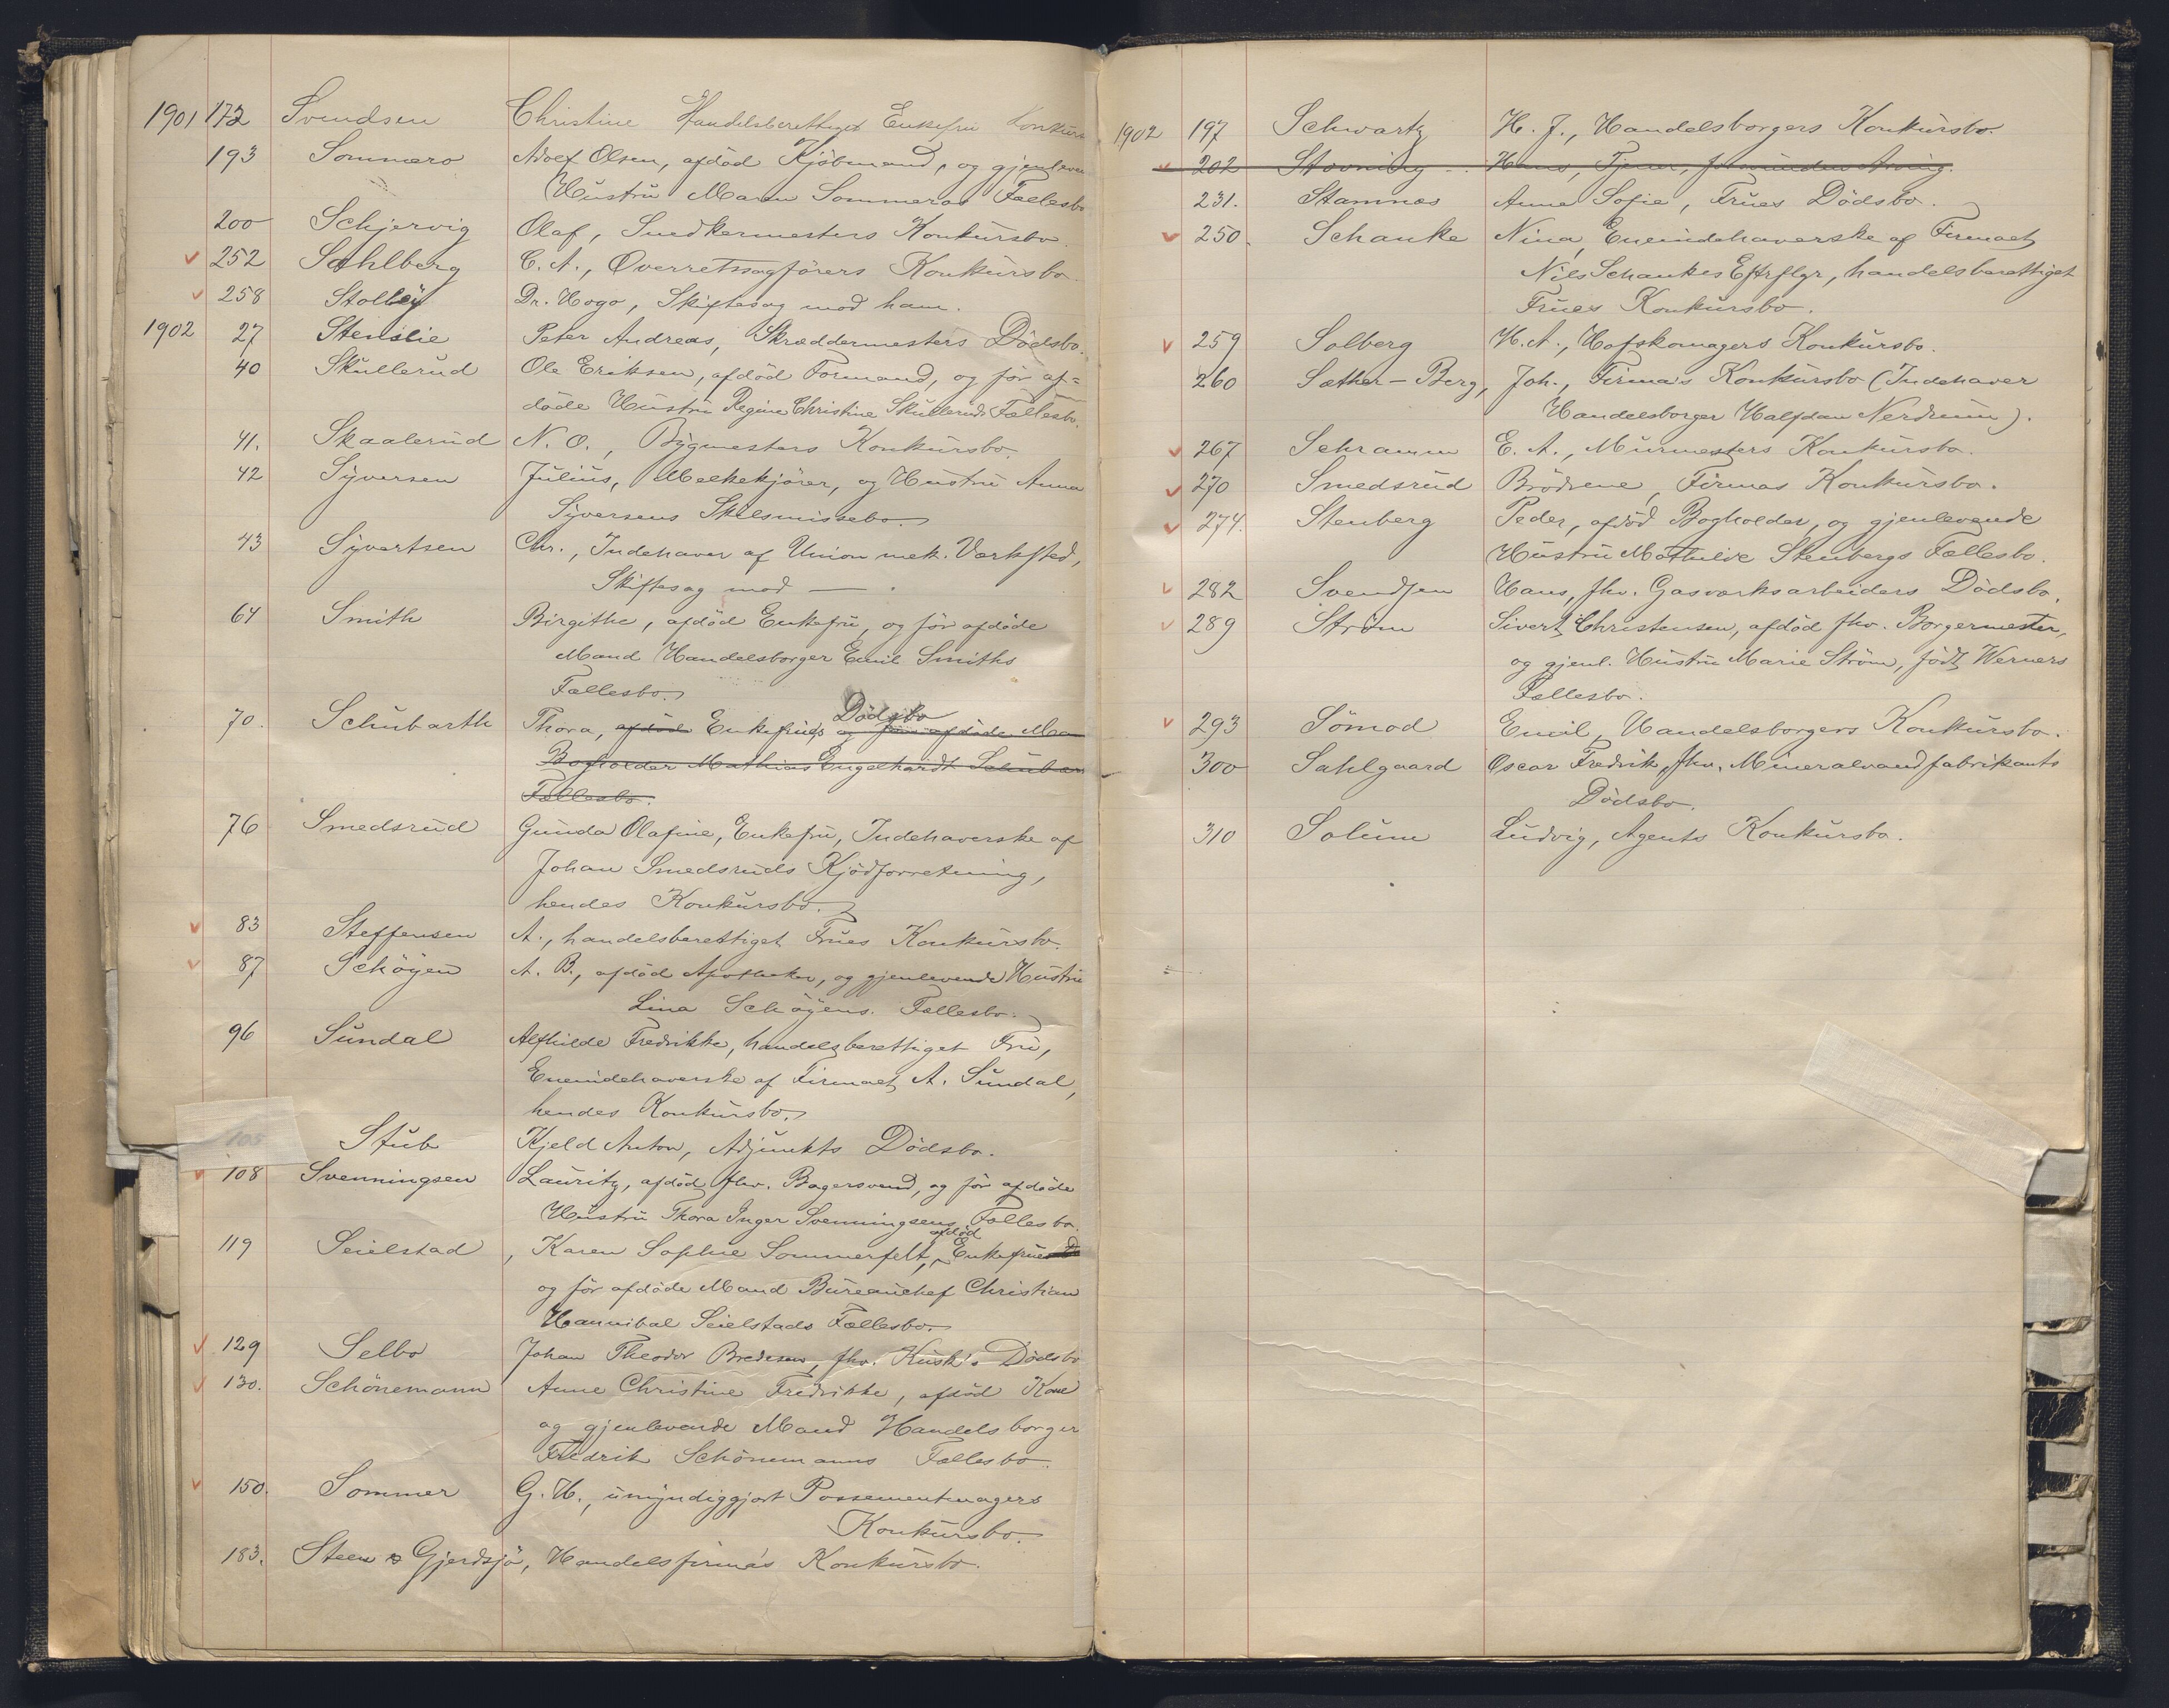 1901 172 Svendsen Christine Handelsberettiget Enkefru Konkurs
193 Sommero Adolf Olsen, afdöd Kjöbmand, og gjenleven
Hustru Maren Sommeros Fællesbo
200 Schjervig Olaf, Snedkermesters Konkursbo.
v 252 Sahlberg C. A., Overretssagförers Konkursbo.
v 258 Dr. Hogo, Skiftesag mod ham.
1902 27 Stenslie Peter Andreas, Skræddermesters Dödsbo.
40 Skullerud Ole Eriksen, afdöd Formand, og för af=
döde Hustru Regine Christine Skulleruds Fællesbo.
41. Skaalerud N. O., Bygmesters Konkursbo.
42 Syversen Julius, Melkekjörer, og Hustru Anna
Syversens Skilsmissebo.
43 Syvertsen Chr., Indehaver af Union mek. Værksted,
Skiftesag mod — .
64 Smith Birgithe, afdöd Enkefru, og för afdöde
Mand Handelsborger Emil Smiths
Fællesbo.
Dödsbo
70. Schubarth Thora, afdöde Enkefrues og för afdöde Man
Bogholder Mathias Engelhardt Schubar
Fællesbo.
76 Smedsrud Gunda Olafine, Enkefru, Indehaverske af
Johan Smedsruds Kjödforretning,
hendes Konkursbo.
v 83 Steffensen A., handelsberettiget Frues Konkursbo.
v 87 Schöyen A. B., afdöd Apotheker, og gjenlevende Hustru
Lina Schöyens Fællesbo.
96 Sundal Alfhilde Fredrikke, handelsberettiget Fru,
Eneindehaverske af Firmaet A. Sundal,
hendes Konkursbo.
105 Stub Kjeld Anton, Adjunkts Dödsbo.
v 108 Svenningsen Lauritz, afdöd fhv. Bagersvend, og för afdöde
Hustru Thora Inger Svenningsens Fællesbo.
afdöd
119 Seielstad, Karen Sophie Sommerfelt, Enkefrues Dö
og för afdöde Mand Bureauchef Christian
Hannibal Seielstads Fællesbo.
v 129 Selbo Johan Theodor Bredesen, fhv. Kusk's Dödsbo
v 130. Schönemann Anne Christine Fredrikke, afdöd Kone
og gjenlevende Mand Handelsborger
Fredrik Schönemanns Fællesbo.
v 150. Sommer G. H., umyndiggjort Possementmagers
Konkursbo.
183. Steen & Gjerdsjö, Handelsfirma's Konkursbo.
1902 197 Schwartz H. J., Handelsborgers Konkursbo.
v 202 Hans, Tjener, forsvunden Arving.
231. Stamnæs Anne Sofie, Frues Dödsbo.
v 250. Schanke Nina, Eneindehaverske af Firmaet
Nils Schankes Eftrflgr, handelsberettiget
Frues Konkursbo.
v 259 Solberg H. A., Hofskomagers Konkursbo.
260 Sæther-Berg, Joh., Firma's Konkursbo (Indehaver
Handelsborger Halfdan Nerdrum).
v 267 Schramm E. A., Murmesters Konkursbo.
v 270 Smedsrud Brödrene, Firmas Konkursbo.
v 274. Stenberg Peder, afdöd Bogholder, og gjenlevende
Hustru Mathilde Stenbergs Fællesbo.
v 282 Svendsen Hans, fhv. Gasværksarbeiders Dödsbo.
v 289 Ström Sivert Christensen, afdöd fhv. Borgermester,
og gjenl. Hustru Marie Ström, födt Werners
Fællesbo.
v 293 Sömod Emil, Handelsborgers Konkursbo.
300 Sahlgaard Oscar Fredrik, fhv. Mineralvandfabrikants
Dödsbo.
310 Solum Ludvig, Agents Konkursbo.